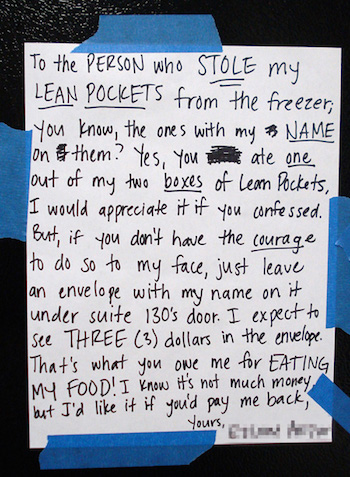 To the PERSON who STOLE my
LEAN POCKETS from the freezer,
you know, the ones with my NAME
on them? Yes, you ate one
out of my two boxes of Lean Pockets,
I would appreciate it if you confessed.
But, if you don't have the courage
to do so to my face, just leave
an envelope with my name on it
under suite 130's door. I expect to
see THREE (3) dollars in the envelope.
That's what you owe me for EATING
MY FOOD! I know it's not much money,
but I'd like it if you'd pay me back,
Yours,